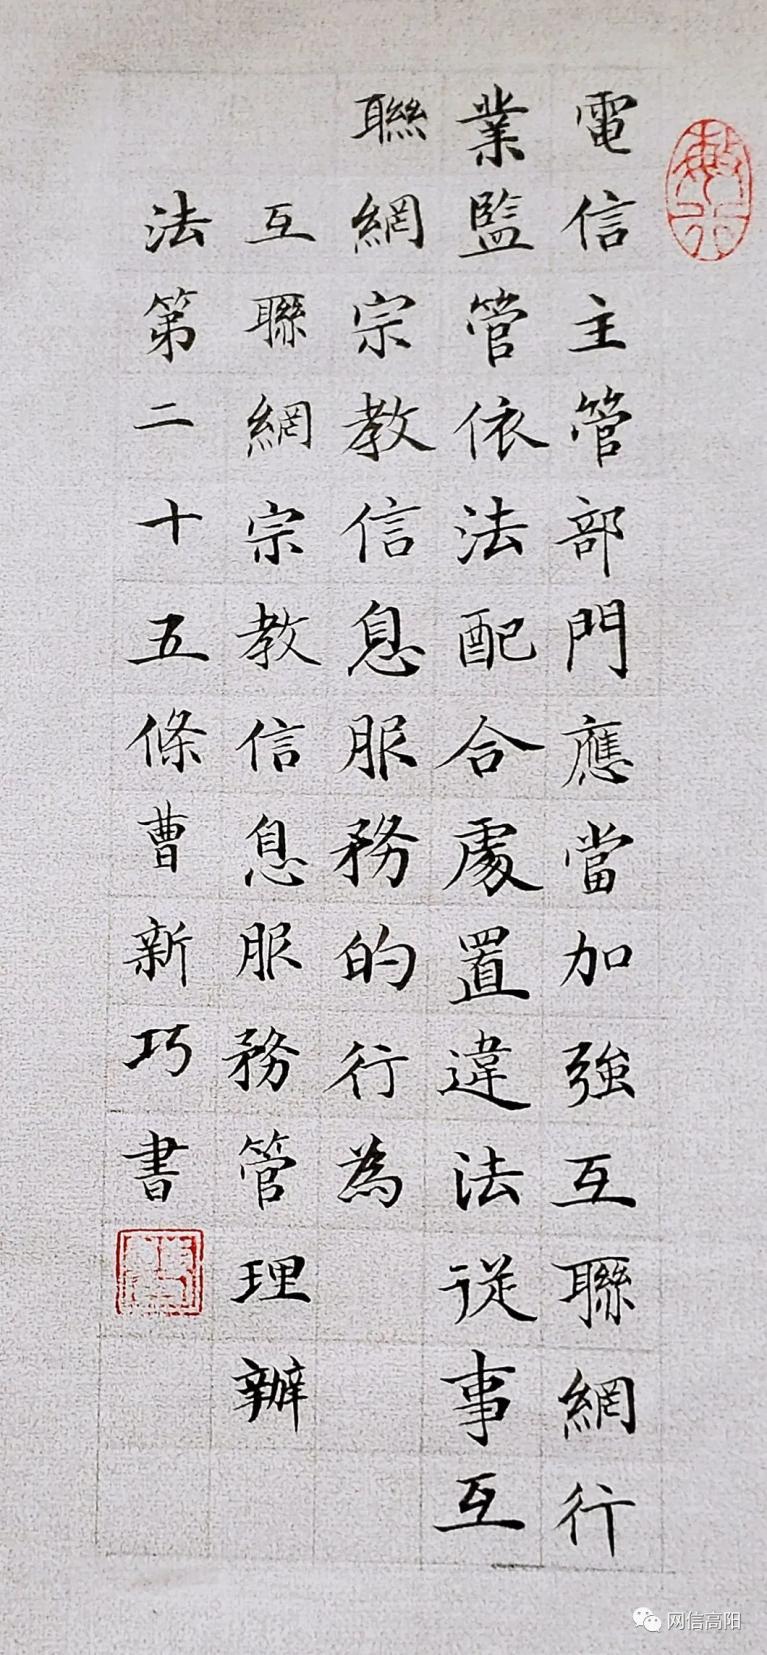 電信主管部門應當加強互聯網行
業監管依法配合處置違法從事互
聯網宗教信息服務的行為
互聯網宗教信息服務管理辦
法第二十五條曹新巧書
网信高阳